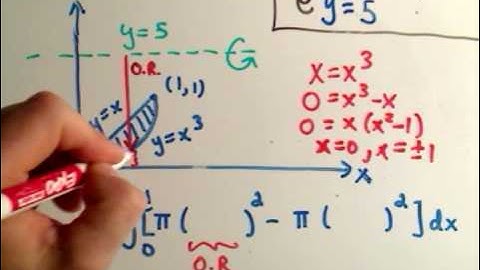 e y=5
y=5
O.R.
(1,1)
y=x
y=x³
x
x=x³
0=x³-x
0=x(x²-1)
x=0, x=±1
∫₀¹[π( )²-π( )²]dx
O.R
EXPO